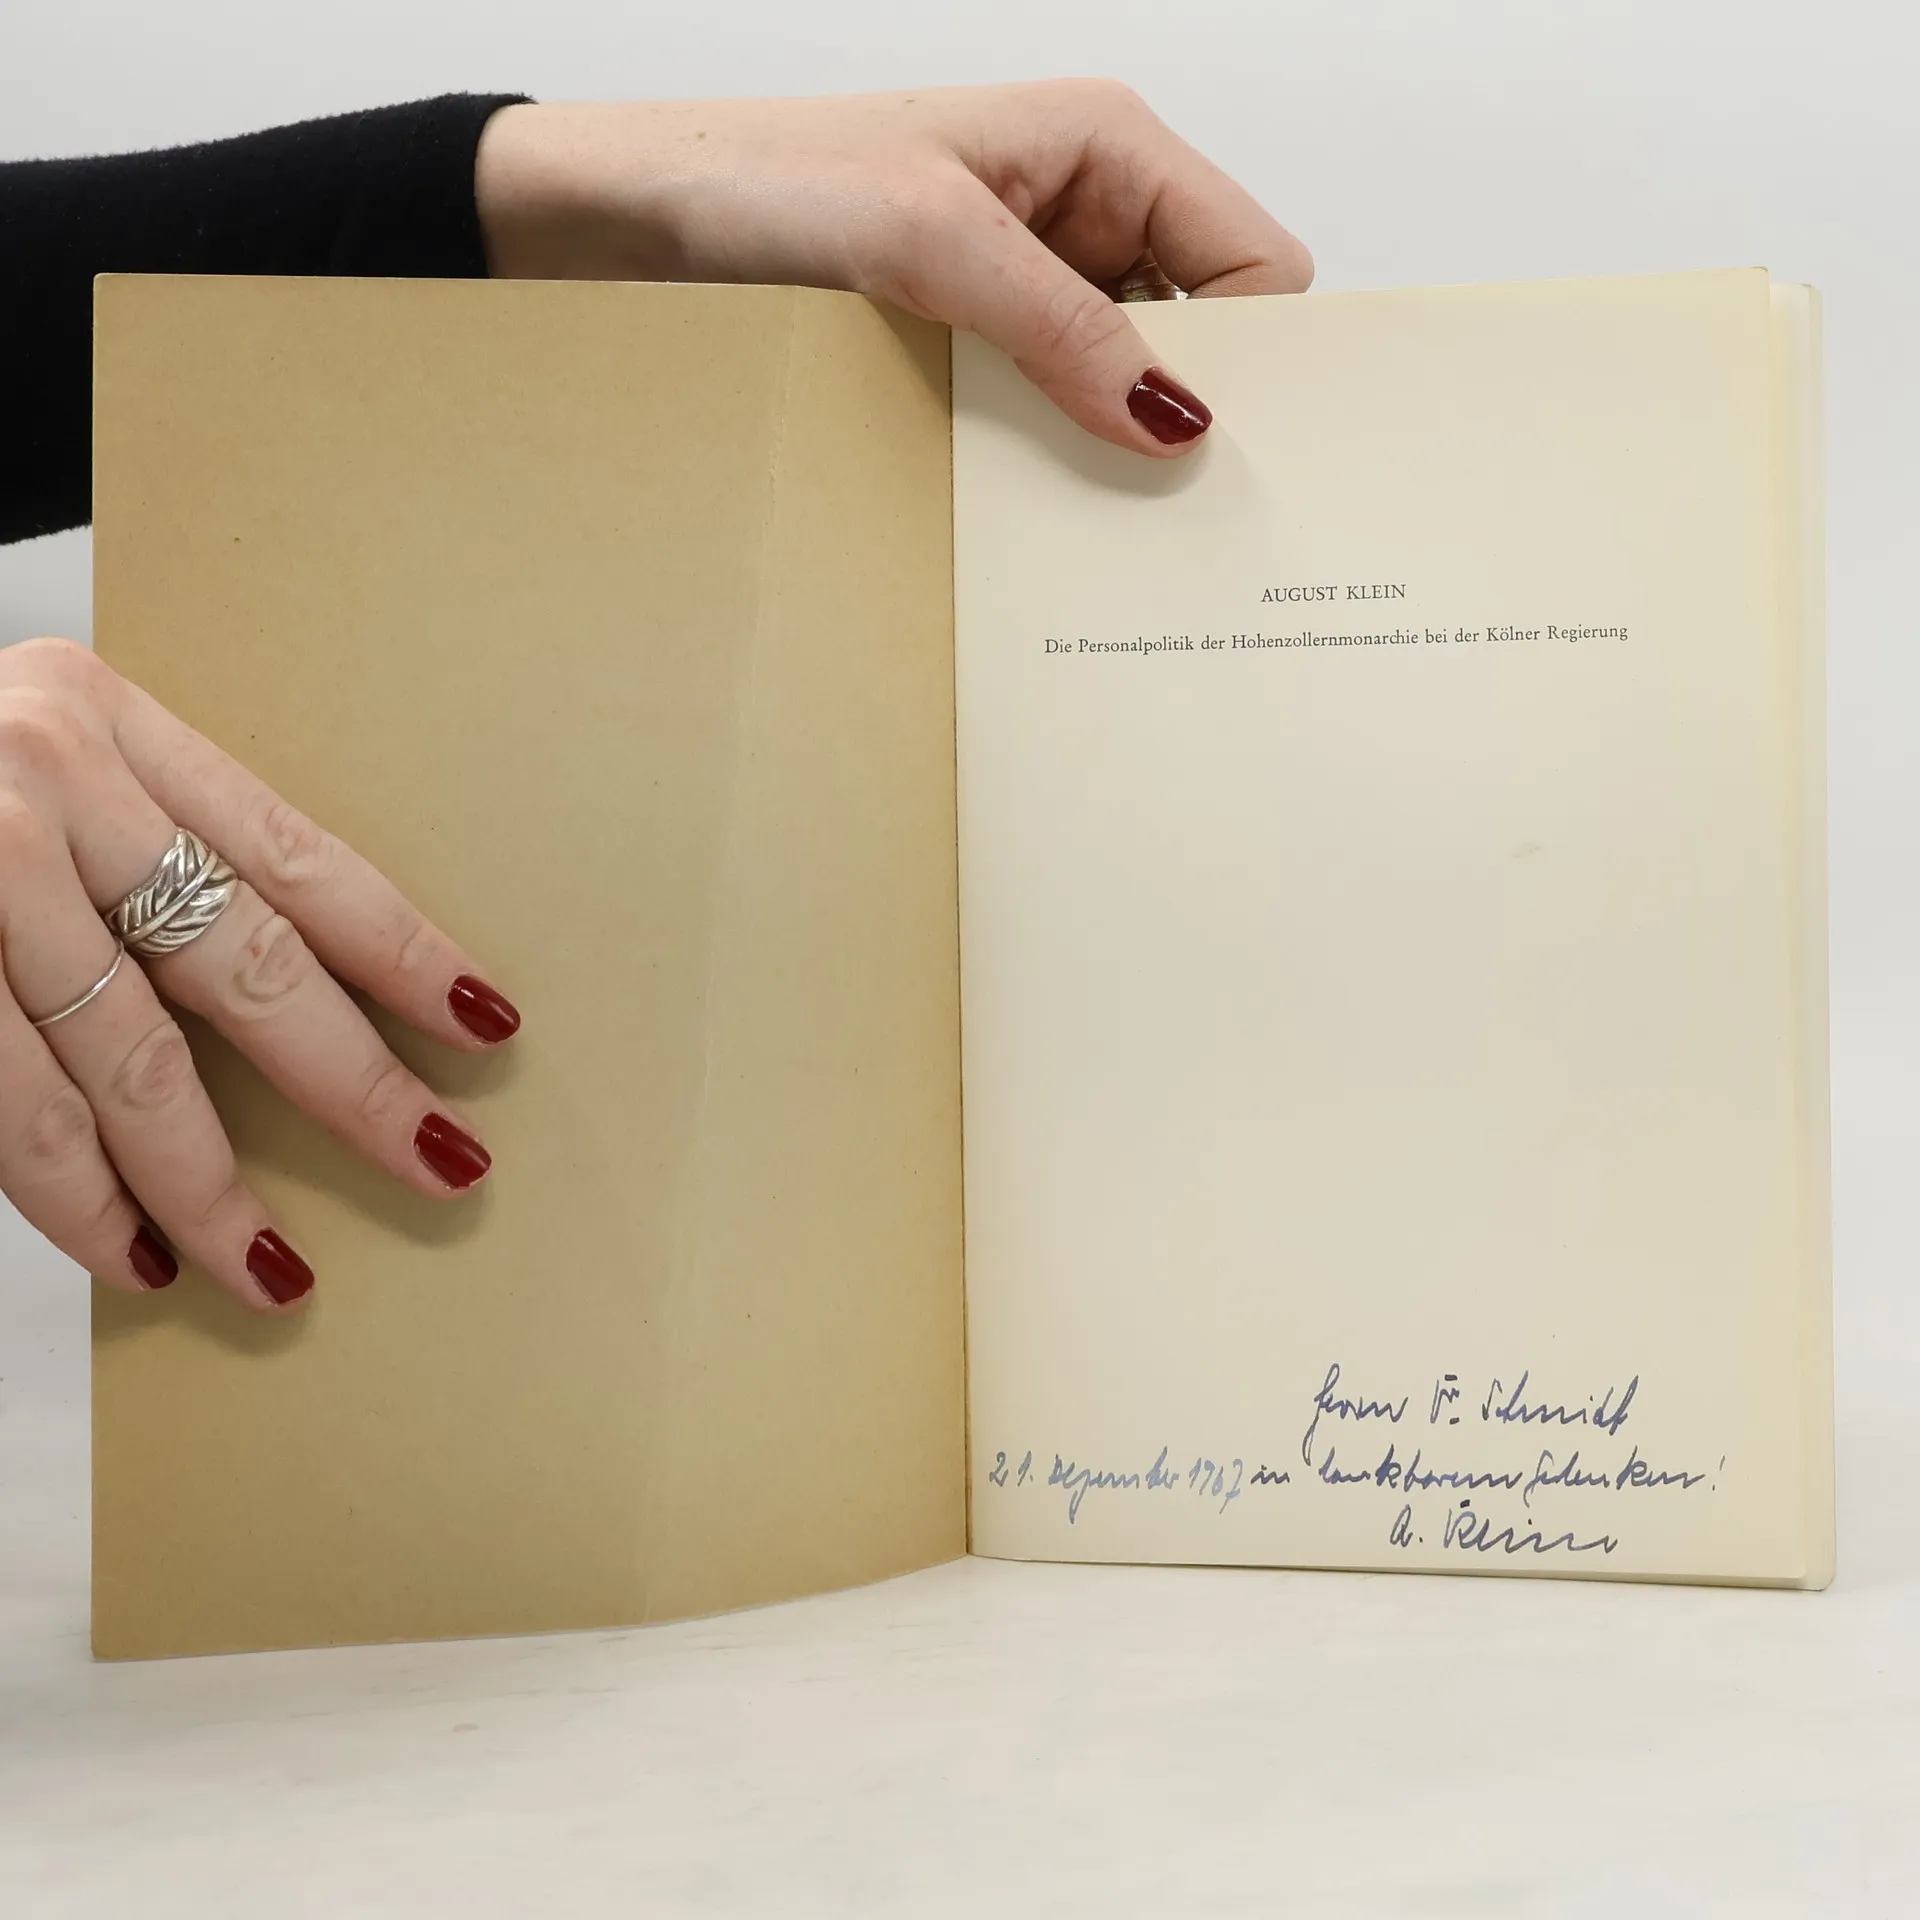 AUGUST KLEIN
Die Personalpolitik der Hohenzollernmonarchie bei der Kölner Regierung
Herrn Dr. Schmidt
21. Dezember 1967 in dankbarem Gedenken!
A. Klein